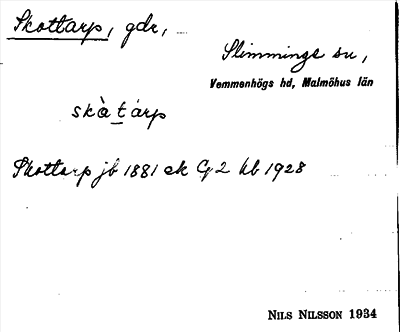 Skottarp, gdr,
Slimminge sn,
Vemmenhögs hd, Malmöhus län
skàtárp
Skottarp jb 1881 ek G2 kb 1928
NILS NILSSON 1934